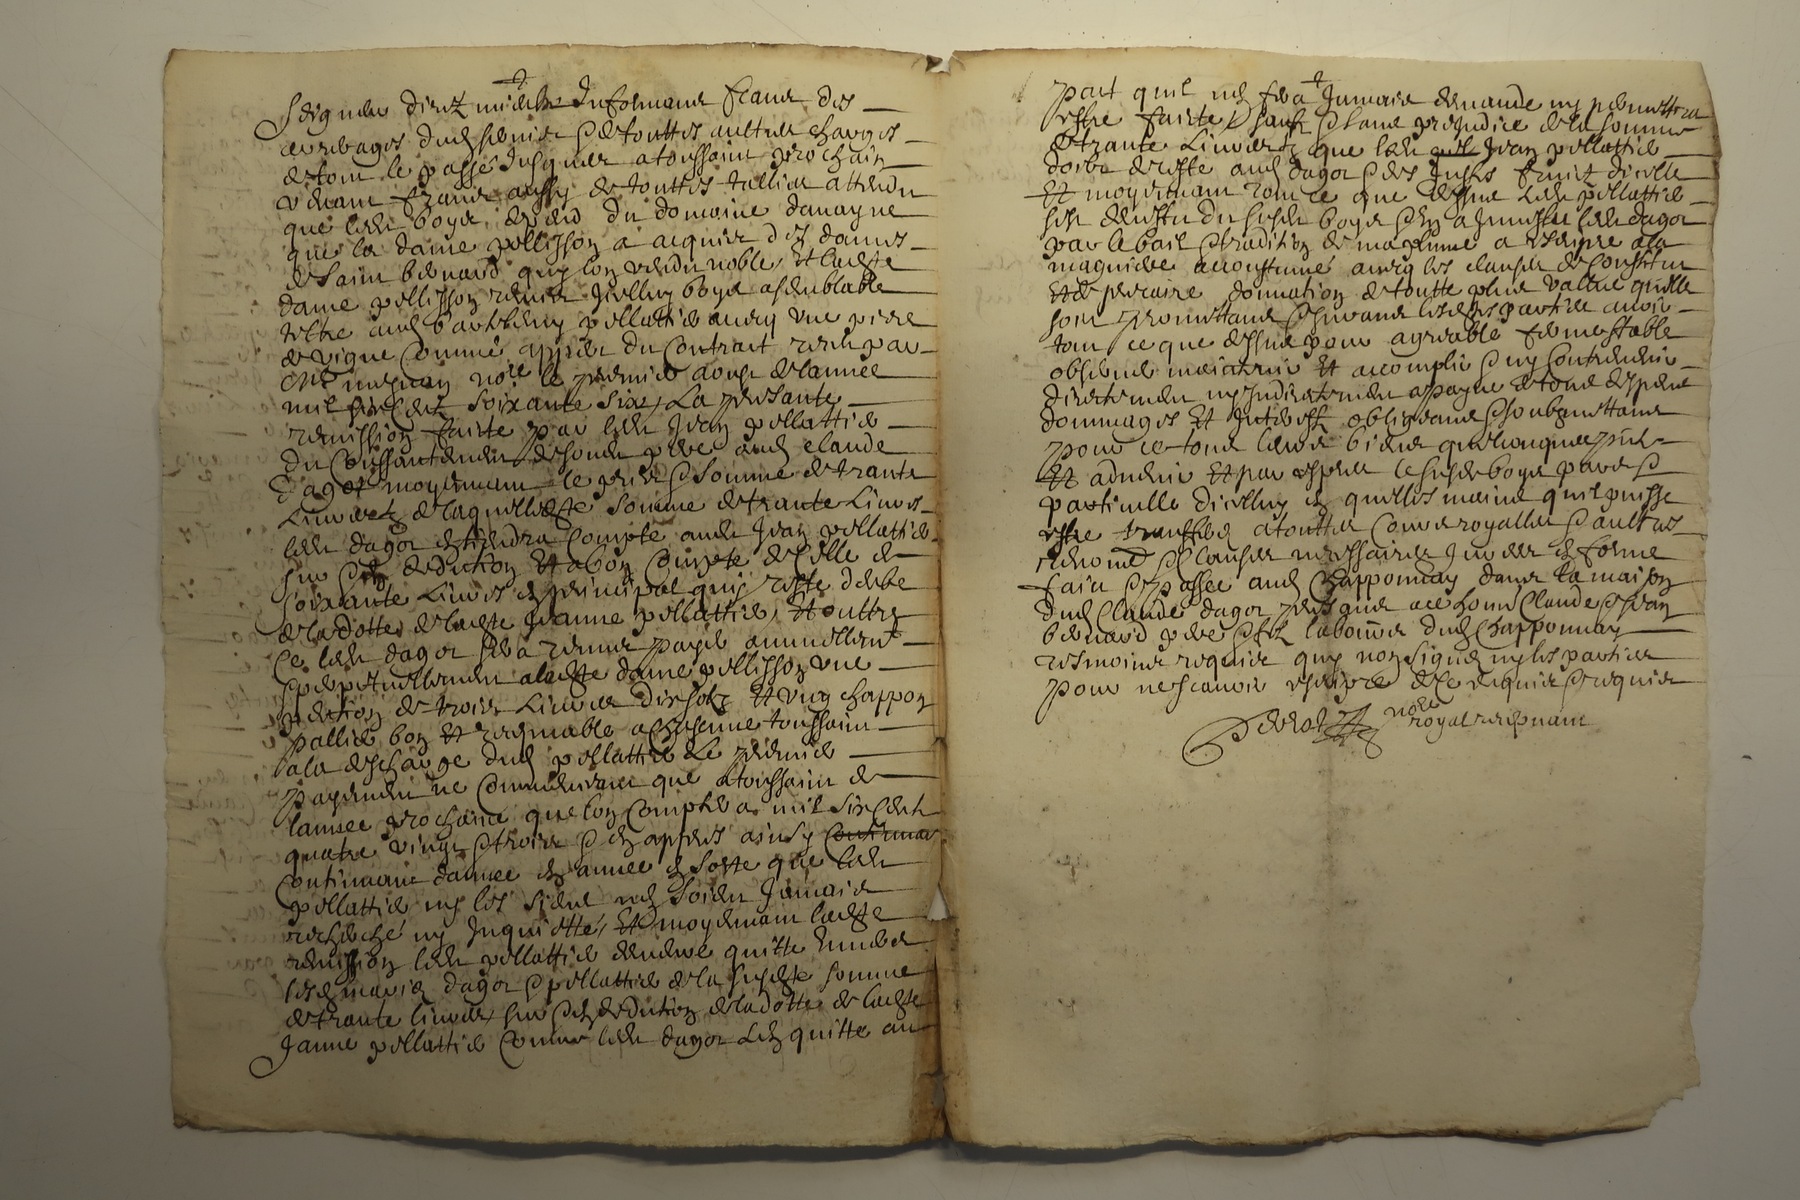 Seigneur direz midelz Informant franc des
arrerages dud servis & de touttes aultres charges
de tout le passé Jusques a toussaint prochain
venant franc aussy de touttes tallies attendu
que led boye du domaine
que la dame pellisson a acquis des dames
de saint bernard quy lon vendu noble, Et ladte
dame pellisson remis Jcelluy boye assemblable
tiltre aud barthelemy pellattier avecq une piece
de vigne Comme appert du Contract receu par
me no.re le premier aoust de lannee
mil six Cent soixante six, La presante
remission faicte par led Jean pellattier
du Consantement de sond pere aud claude
dagot moyennant le pris & somme de trante
Liuvres de laquelle dte somme de trante Liuvres
led dagot tiendra Compte aud Jean pellattier
sur & en deduction Et a bon Compte de Celle de
soixante Liuvres en principal quy reste debte
de la dotte de ladte Jeanne pellattier, Et outtre
Ce led dagot sera tenu payer annuellemt
& perpetuellement a ladte dame pellisson une
pention de trois Liuvres dix solz Et ung chappon
pallier bon Et recepuable a chascune toussaint
a la descharge dud pellattier Le premier
payement ne Commencant que a toussaint de
lannee prochaine que lon Comptera mil six Cent
quatre vingt & trois & en appres ainsy Continuer
Continuant dannee en annee en sorte que led
pellattier ny les siens nen soient Jamais
recherché ny Inquietté, Et moyennant ladte
remission led pellattier demeure quitte envers
lesd mariez dagot & pellattier de la susdte somme
de trante liuvres, sur & en deduction de la dotte de ladte
Janne pellattier Comme led dagot Len quitte au
part quil nen fera Jamais demande ny permettra
estre faicte, sauf & sans prejudice de la somme
de trante Liuvres que led Jean pellattier
doibt de reste aud dagot & des Justes fruictz dicelle
Et moyennant tout ce que dessus led pellattier
sest demis du susd boye & en a Jnvestu led dagot
par le bail & tradition de ma plume a escripre a la
maniere accoustumé avecq les clauses de Constitut
Et de precaire donnation de toutte plus vallue quelle
soit promettant & Jurant lesdtes parties avoir
tout ce que dessus pour agreable ferme stable
observer maintenir Et accomplir & ny Contrevenir
directement ny Indirectement a payne de tous despens
dommages Et Interestz obligeant & soubzmettant
pour ce tous leurs biens quelconques pntz
Et advenir Et par expres le susd boye par &
particulle dicelluy en quelles mains quil puisse
estre treuvé a touttes Cours royalles & aultres
renoncé & Clauses necessaires Jurees en forme
faict & passé aud Chapponnay dans la maison
dud Claude dagot presents ace honn Claude & Jean
bernard pere & filz labourrs dud Chapponnay
tesmoins requis quy nont signé ny les parties
pour ne scavoir escripre de ce enquis & requis
Perrot nore
royal recepuant